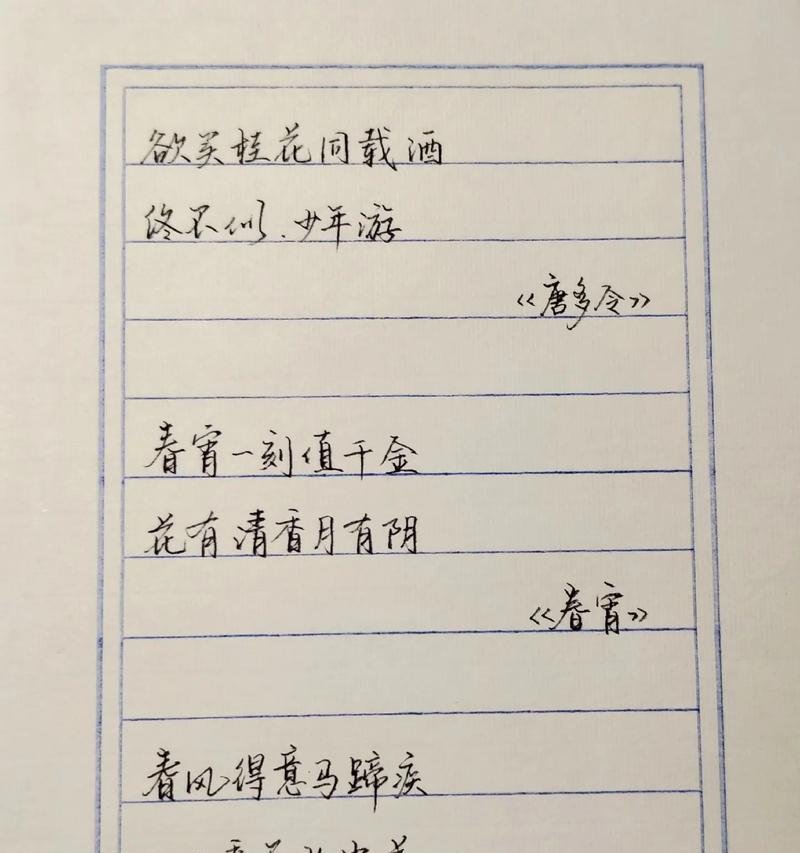 欲买桂花同载酒
终不似.少年游
《唐多令》
春宵一刻值千金
花有清香月有阴
《春宵》
春风得意马蹄疾